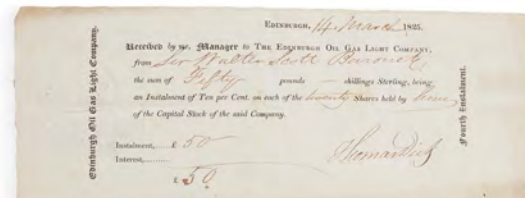 EDINBURGH, 14. March 1825.
Received by me, Manager to THE EDINBURGH OIL GAS LIGHT COMPANY,
from Sir Walter Scott Baronet,
the sum of Fifty pounds — shillings Sterling, being
an Instalment of Ten per Cent. on each of the twenty Shares held by him
of the Capital Stock of the said Company.
Instalment,.... £ 50
Interest,........
£ 50
Edinburgh Oil Gas Light Company.
Fourth Instalment.